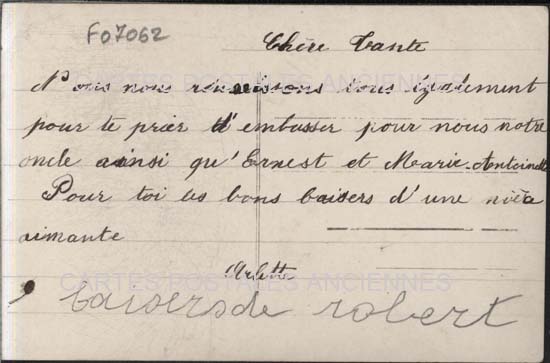 F07062
Chère Tante
Nous nous réunissons tous également
pour te prier d'embasser pour nous notre
oncle ainsi qu'Ernest et Marie-Antoinette
Pour toi les bons baisers d'une nièce
aimante
Arlette
baisers de robert
CARTES POSTALES ANCIENNES
CARTES POSTALES ANCIENNES